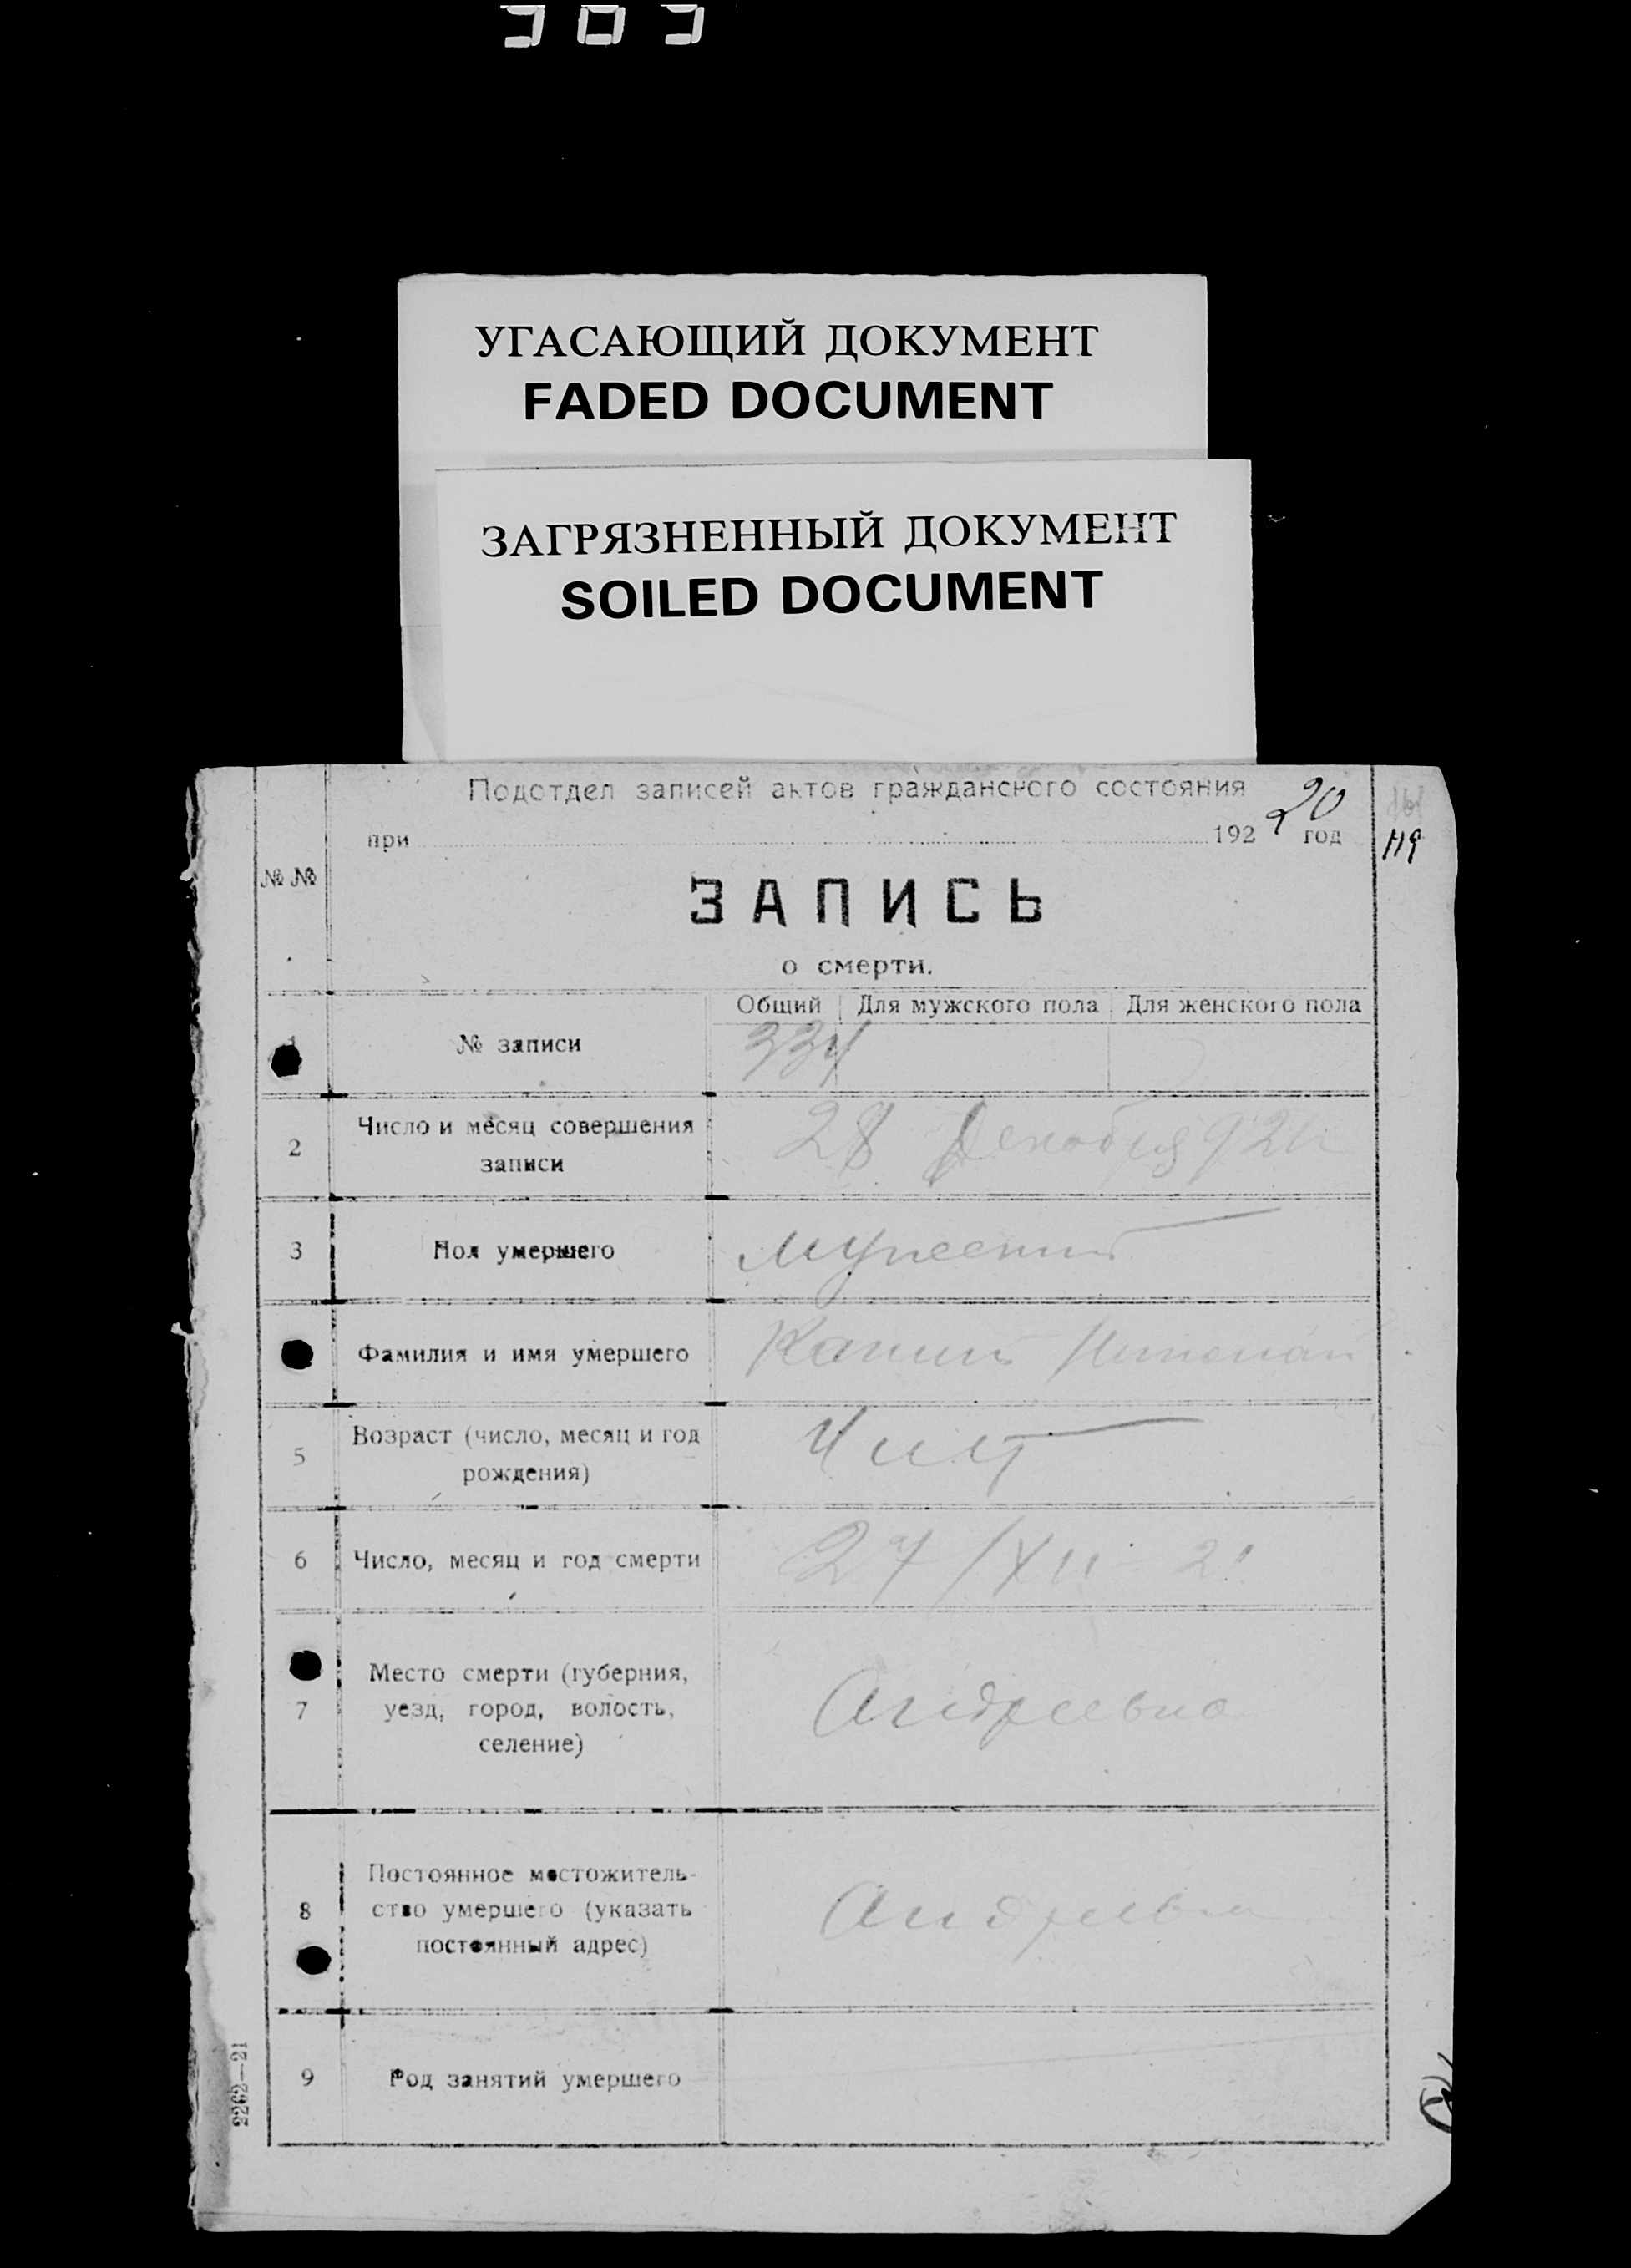 УГАСАЮЩИЙ ДОКУМЕНТ
FADED DOCUMENT
ЗАГРЯЗНЕННЫЙ ДОКУМЕНТ
SOILED DOCUMENT
Подотдел записей актов гражданского состояния
при 192 год
20
119
№ №
ЗАПИСЬ
о смерти.
Общий Для мужского пола Для женского пола
1 № записи 334
2 Число и месяц совершения
записи
28 Декабря 921
3 Пол умершего мужской
Фамилия и имя умершего Николай
5 Возраст (число, месяц и год
рождения)
4
6 Число, месяц и год смерти 27/XII 21
Место смерти (губерния,
7 уезд, город, волость,
селение)
Андреевка
Постоянное местожитель-
8 ство умершего (указать
постоянный адрес)
Андреевка
9 Род занятий умершего
2262—21